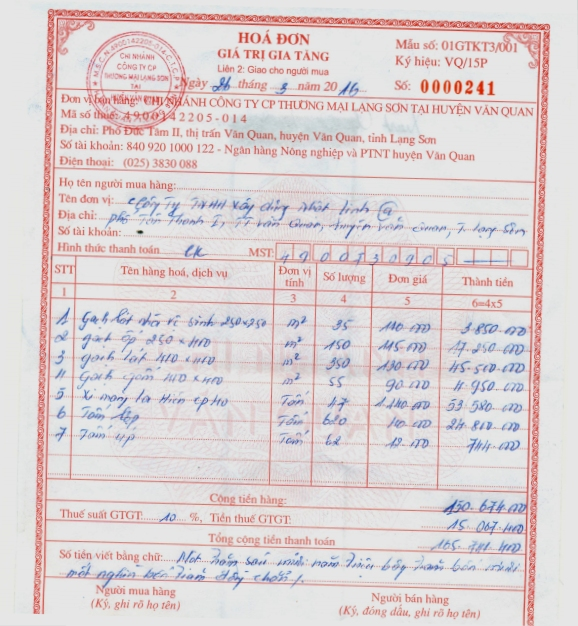 HOÁ ĐƠN
GIÁ TRỊ GIA TĂNG
Liên 2: Giao cho người mua
Ngày 26 tháng 3 năm 2016
Mẫu số: 01GTKT3/001
Ký hiệu: VQ/15P
Số: 0000241
M.S.C.N:4900142205-014-C.T.C.P
CHI NHÁNH
CÔNG TY CP
THƯƠNG MẠI LẠNG SƠN
TẠI
Đơn vị bán hàng: CHI NHÁNH CÔNG TY CP THƯƠNG MẠI LẠNG SƠN TẠI HUYỆN VĂN QUAN
Mã số thuế: 4900142205-014
Địa chỉ: Phố Đức Tâm II, thị trấn Văn Quan, huyện Văn Quan, tỉnh Lạng Sơn
Số tài khoản: 840 920 1000 122 - Ngân hàng Nông nghiệp và PTNT huyện Văn Quan
Điện thoại: (025) 3830 088
Họ tên người mua hàng:
Tên đơn vị: Công Ty TNHH Xây dựng Nhật Linh
Địa chỉ: phố Tân Thanh I, TT Văn Quan, huyện Văn Quan, T. Lạng Sơn
Số tài khoản:
Hình thức thanh toán CK MST: 4900530905
STT Tên hàng hoá, dịch vụ Đơn vị tính Số lượng Đơn giá Thành tiền
1 2 3 4 5 6=4x5
1 Gạch lát nhà vệ sinh 250x250 m² 35 110.000 3.850.000
2 gạch ốp 250x400 m² 150 115.000 17.250.000
3 gạch lát 400x400 m² 350 130.000 45.500.000
4 Gạch gốm 400x400 m² 55 90.000 4.950.000
5 Xi măng La Hiên Tấn 47 1.140.000 53.580.000
6 Tấm lợp Tấm 620 40.000 24.800.000
7 Tấm úp Tấm 62 12.000 744.000
Cộng tiền hàng: 150.674.000
Thuế suất GTGT: 10 %, Tiền thuế GTGT: 15.067.400
Tổng cộng tiền thanh toán 165.741.400
Số tiền viết bằng chữ: Một trăm sáu mươi năm triệu bảy trăm bốn mươi
một nghìn bốn trăm đồng chẵn ./.
Người mua hàng Người bán hàng
(Ký, ghi rõ họ tên) (Ký, đóng dấu, ghi rõ họ tên)